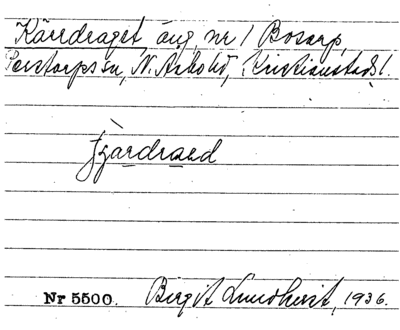 Kärrdraget, äng, nr 1 Bosarp,
Perstorps sn, N. Åsbo hd, Kristianstads l.
Nr 5500. Birgit Lundqvist, 1936.